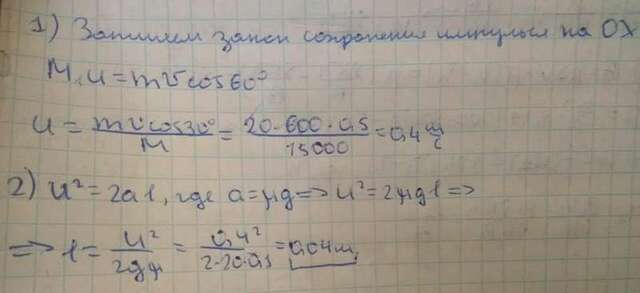 1) Запишем закон сохранения импульса на OX
M u = m v cos 60°
u = m v cos 30° / M = 20·600·0,5 / 15000 = 0,4 м/с
2) u² = 2al, где a = μg => u² = 2μgl =>
=> l = u² / 2gμ = 0,4² / 2·20·0,1 = 0,04 м